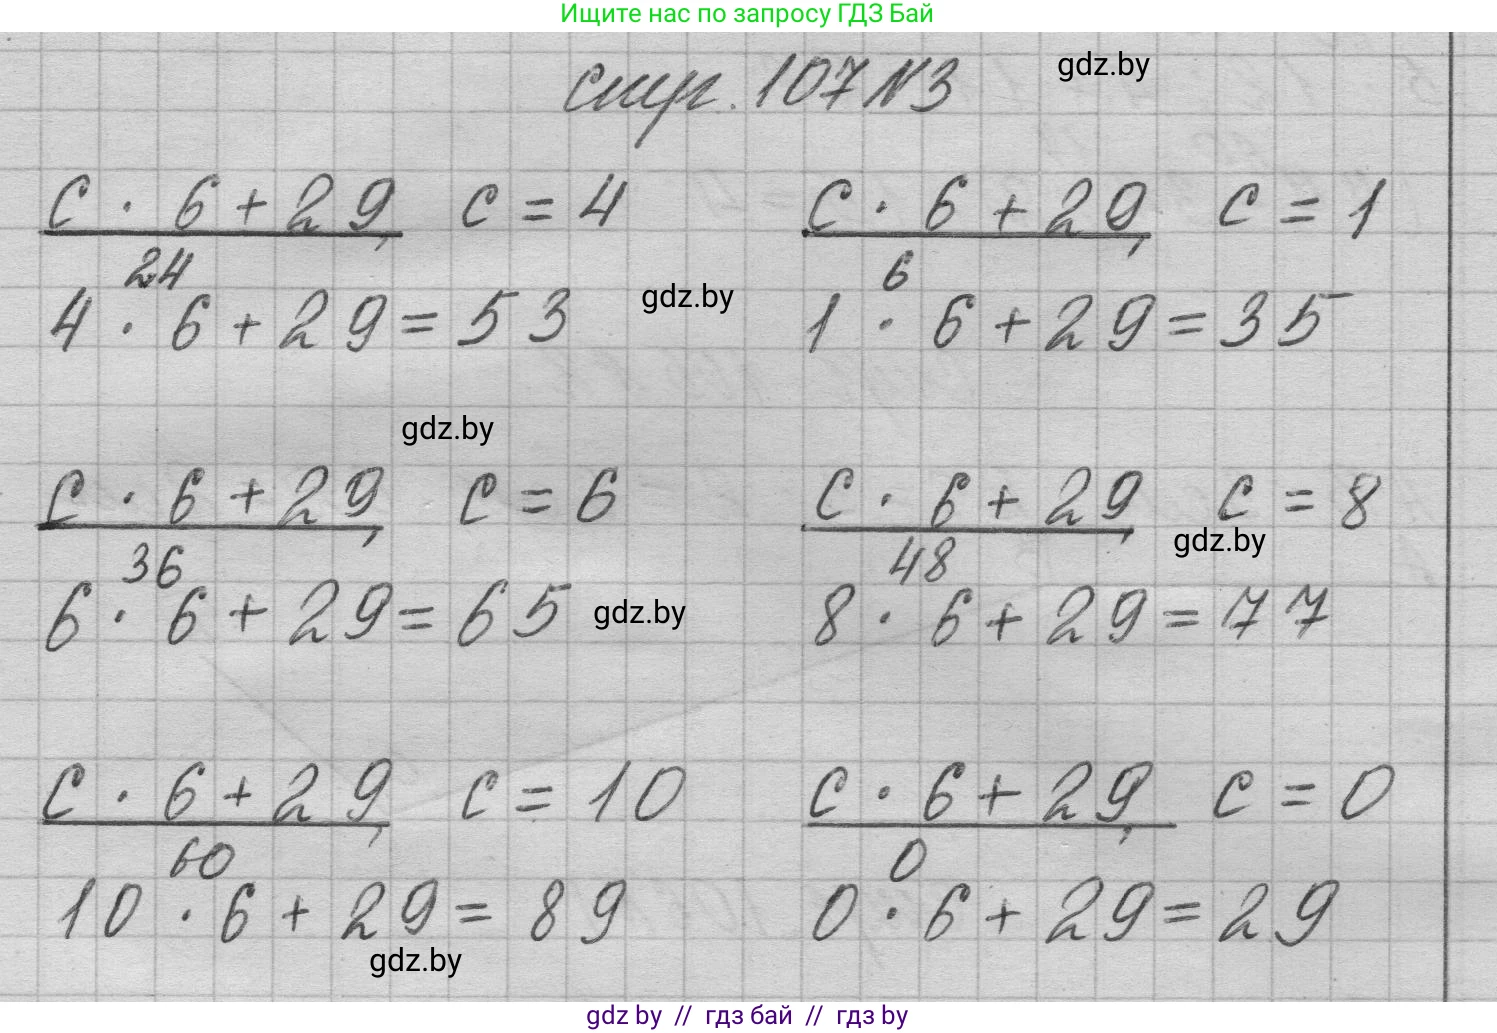 Ищите нас по запросу ГДЗ Бай
стр. 107 №3 gdz.by
c · 6 + 29, c = 4 c · 6 + 29, c = 1
24 6
4 · 6 + 29 = 53 gdz.by 1 · 6 + 29 = 35
gdz.by
c · 6 + 29, c = 6 c · 6 + 29, c = 8
gdz.by
36 48
6 · 6 + 29 = 65 gdz.by 8 · 6 + 29 = 77
c · 6 + 29, c = 10 c · 6 + 29, c = 0
60 0
10 · 6 + 29 = 89 0 · 6 + 29 = 29
gdz.by
gdz by // гдз бай // гдз by